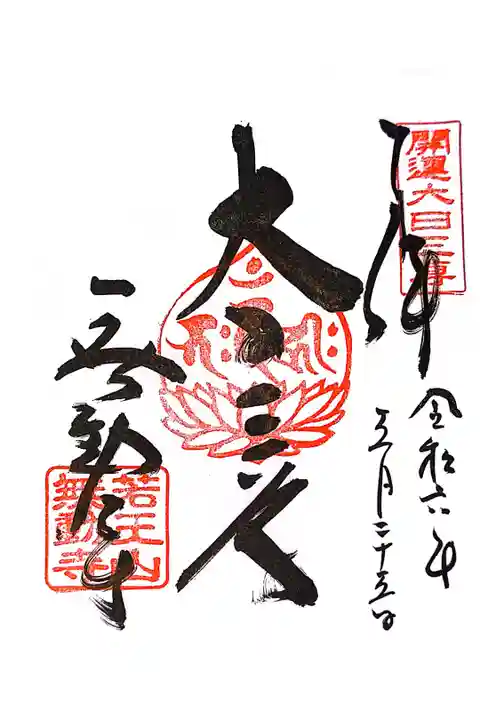 奉拝
開運大日三尊
令和六年
五月二十五日
大日三尊
無動寺
若王山
無動寺